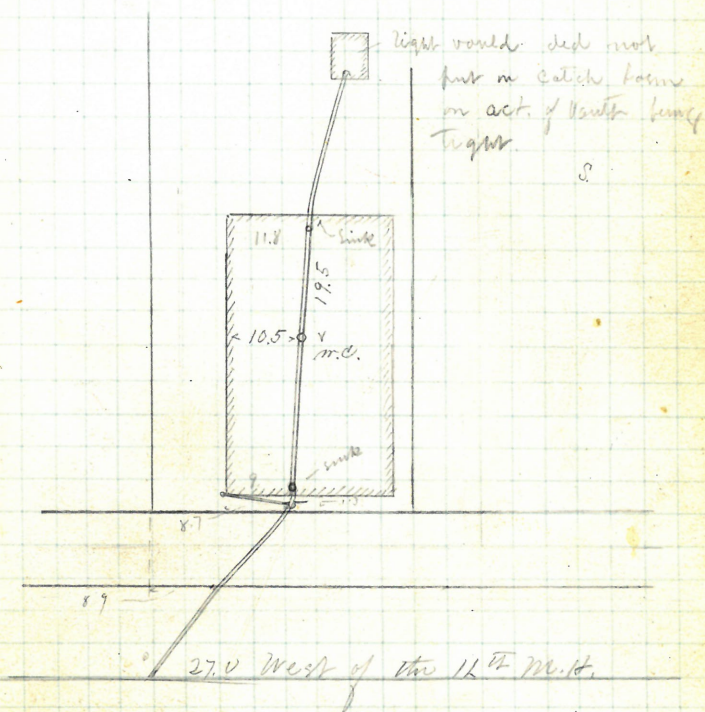 Tight vould. did not
put in catch basin
on act. of Vault being
Tight.
S.
11.8
Sink
19.5
10.5
W.C.
sink
9
8.7
8.9
27.0 West of the 16th M.H.